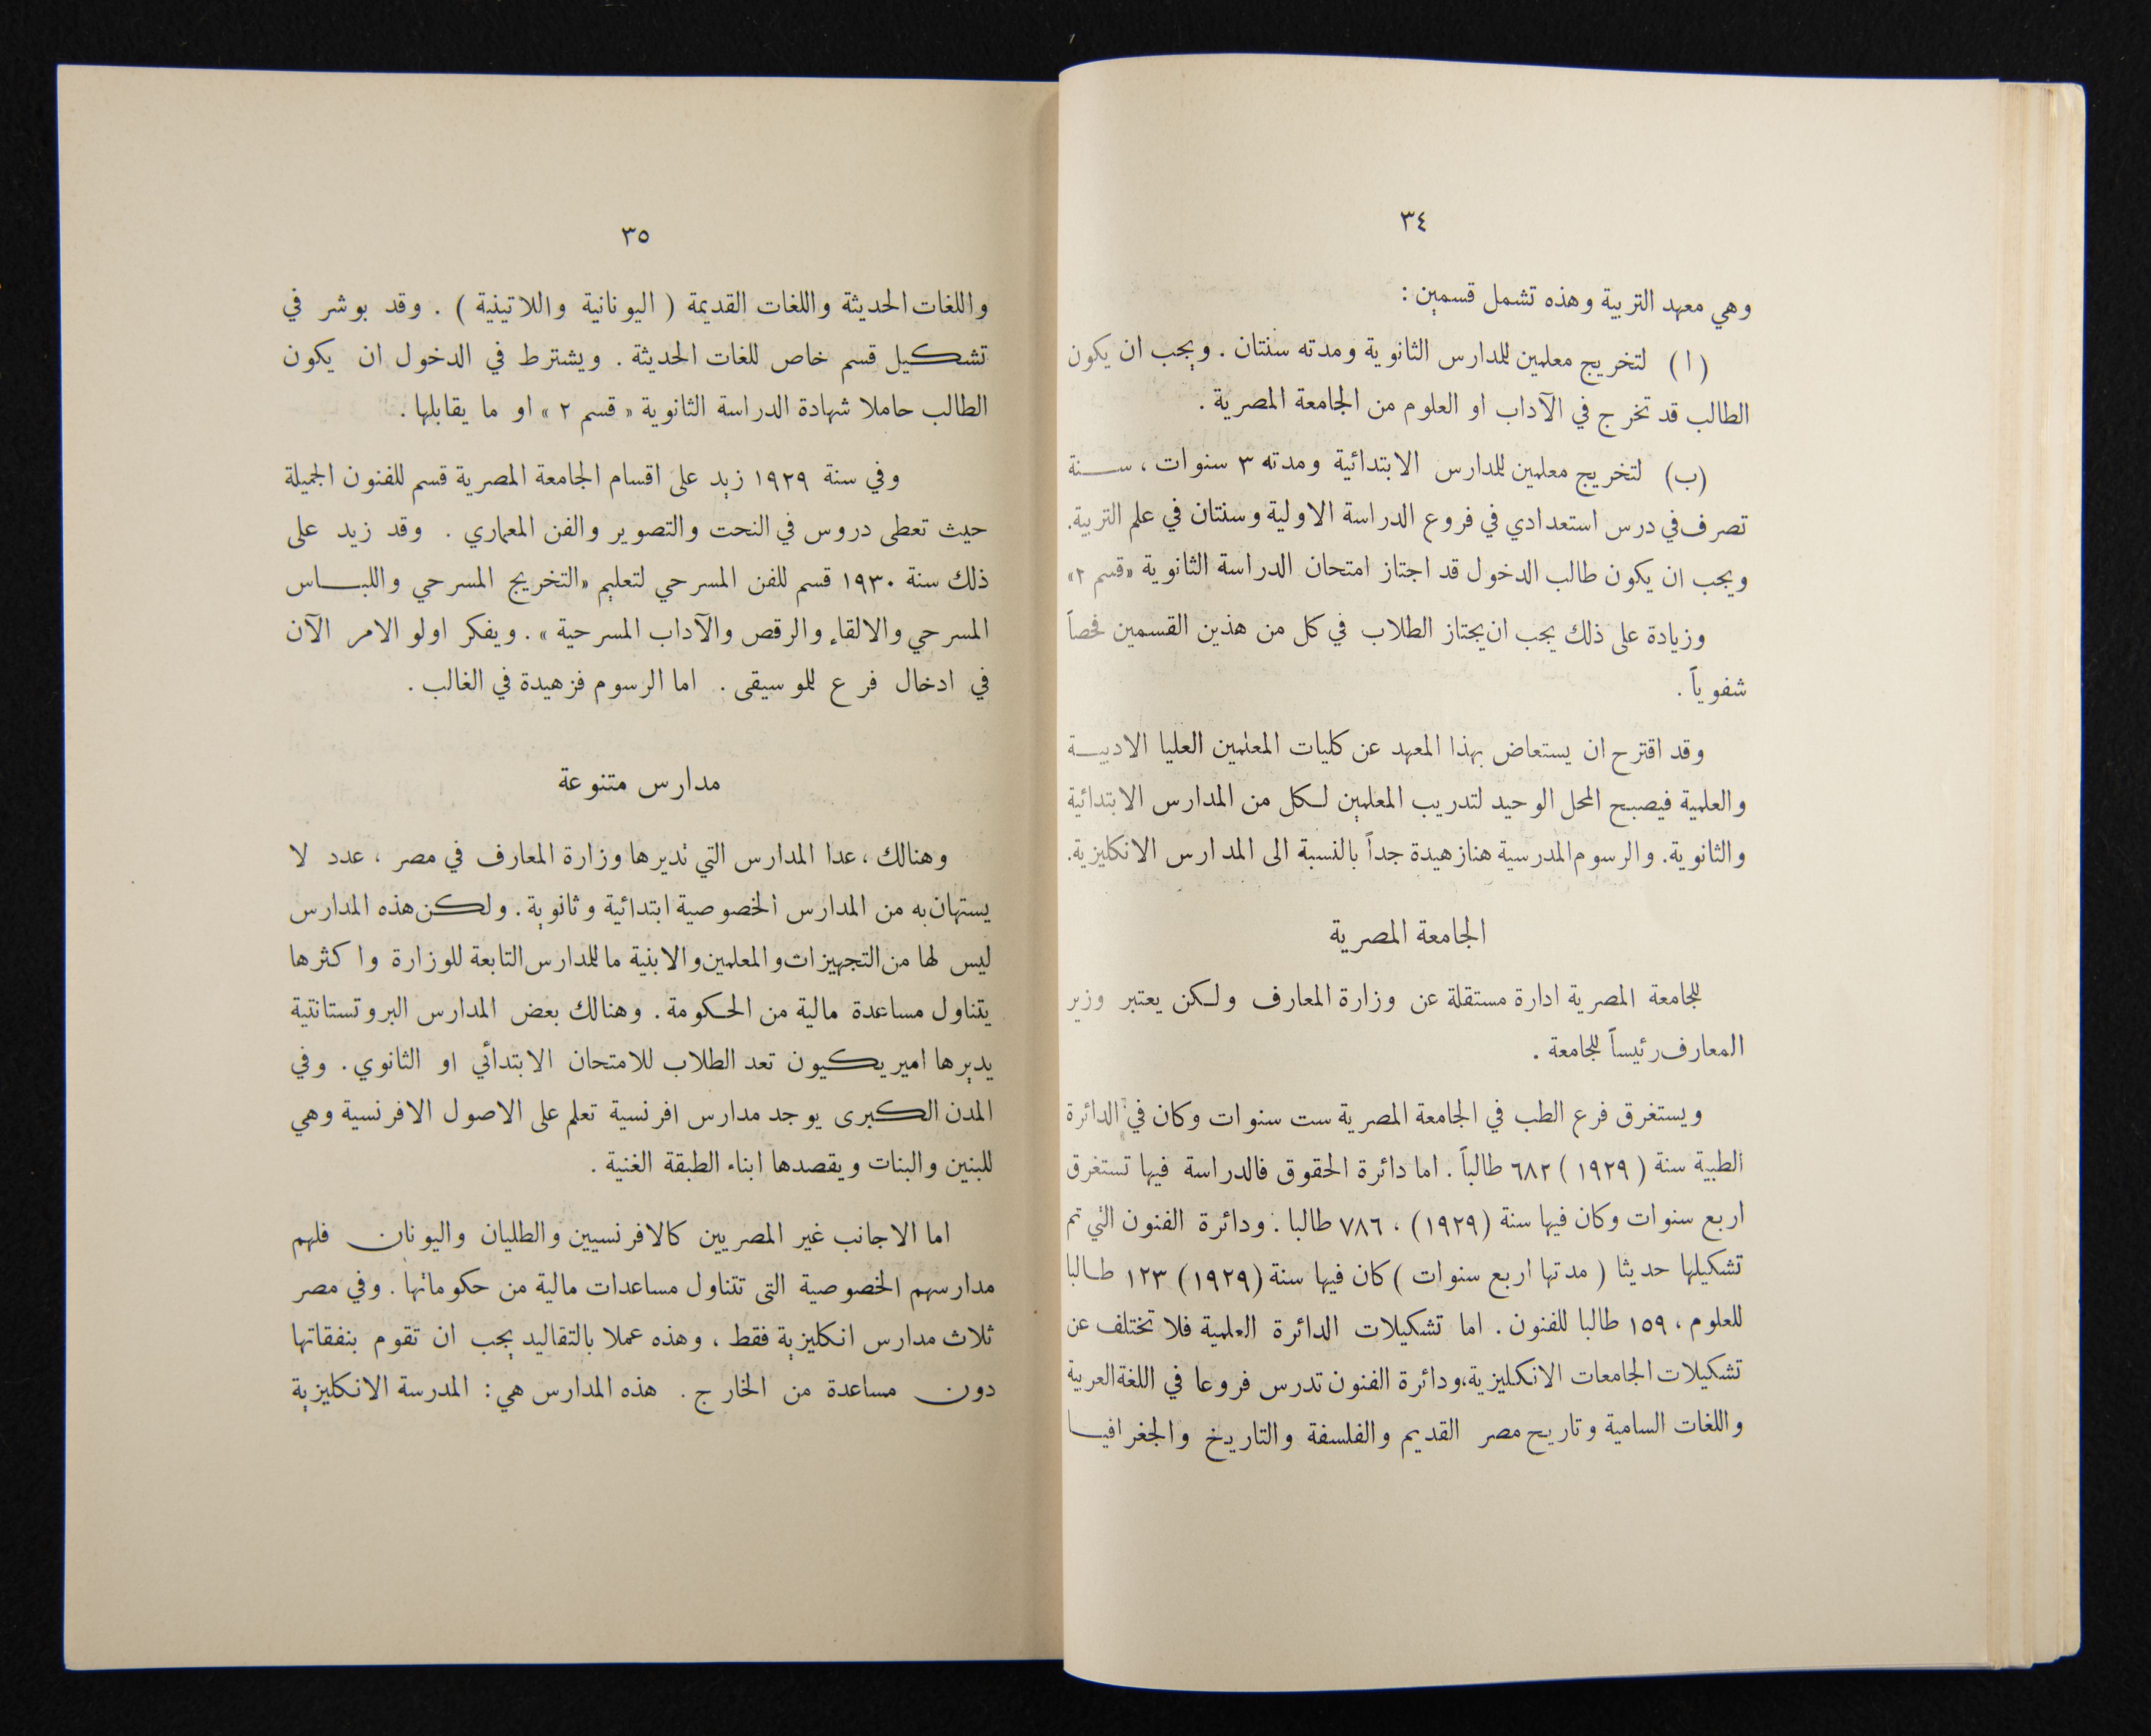 ٣٤
وهي معهد التربية وهذه تشمل قسمين :
( ا ) لتخريج معلمين للمدارس الثانوية ومدته سنتان . ويجب ان يكون
الطالب قد تخرج في الآداب او العلوم من الجامعة المصرية .
(ب) لتخريج معلمين للمدارس الابتدائية ومدته ٣ سنوات ، سنة
تصرف في درس استعدادي في فروع الدراسة الاولية وسنتان في علم التربية.
ويجب ان يكون طالب الدخول قد اجتاز امتحان الدراسة الثانوية «قسم ٢»
وزيادة على ذلك يجب ان يجتاز الطلاب في كل من هذين القسمين فحصاً
شفوياً .
وقد اقترح ان يستعاض بهذا المعهد عن كليات المعلمين العليا الادبية
والعلمية فيصبح المحل الوحيد لتدريب المعلمين لكل من المدارس الابتدائية
والثانوية. والرسوم المدرسية هنا زهيدة جداً بالنسبة الى المدارس الانكليزية.
الجامعة المصرية
للجامعة المصرية ادارة مستقلة عن وزارة المعارف ولكن يعتبر وزير
المعارف رئيساً للجامعة .
ويستغرق فرع الطب في الجامعة المصرية ست سنوات وكان في الدائرة
الطبية سنة ( ١٩٢٩ ) ٦٨٢ طالباً . اما دائرة الحقوق فالدراسة فيها تستغرق
اربع سنوات وكان فيها سنة (١٩٢٩) ، ٧٨٦ طالبا . ودائرة الفنون التي تم
تشكيلها حديثا ( مدتها اربع سنوات ) كان فيها سنة (١٩٢٩) ١٢٣ طالبا
للعلوم ، ١٥٩ طالبا للفنون . اما تشكيلات الدائرة العلمية فلا تختلف عن
تشكيلات الجامعات الانكليزية، ودائرة الفنون تدرس فروعا في اللغة العربية
واللغات السامية وتاريح مصر القديم والفلسفة والتاريخ والجغرافيا
٣٥
واللغات الحديثة واللغات القديمة ( اليونانية واللاتينية ) . وقد بوشر في
تشكيل قسم خاص للغات الحديثة . ويشترط في الدخول ان يكون
الطالب حاملا شهادة الدراسة الثانوية « قسم ٢ » او ما يقابلها .
وفي سنة ١٩٢٩ زيد على اقسام الجامعة المصرية قسم للفنون الجميلة
حيث تعطى دروس في النحت والتصوير والفن المعماري . وقد زيد على
ذلك سنة ١٩٣٠ قسم للفن المسرحي لتعليم «التخريج المسرحي واللباس
المسرحي والالقاء والرقص والآداب المسرحية » . ويفكر اولو الامر الآن
في ادخال فرع للموسيقى . اما الرسوم فزهيدة في الغالب .
مدارس متنوعة
وهنالك ، عدا المدارس التي تديرها وزارة المعارف في مصر ، عدد لا
يستهان به من المدارس الخصوصية ابتدائية وثانوية . ولكن هذه المدارس
ليس لها من التجهيزات والمعلمين والابنية ما للمدارس التابعة للوزارة واكثرها
يتناول مساعدة مالية من الحكومة . وهنالك بعض المدارس البروتستانتية
يديرها اميريكيون تعد الطلاب للامتحان الابتدائي او الثانوي . وفي
المدن الكبرى يوجد مدارس افرنسية تعلم على الاصول الافرنسية وهي
للبنين والبنات ويقصدها ابناء الطبقة الغنية .
اما الاجانب غير المصريين كالافرنسيين والطليان واليونان فلهم
مدارسهم الخصوصية التى تتناول مساعدات مالية من حكوماتها . وفي مصر
ثلاث مدارس انكليزية فقط ، وهذه عملا بالتقاليد يجب ان تقوم بنفقاتها
دون مساعدة من الخارج . هذه المدارس هي : المدرسة الانكليزية